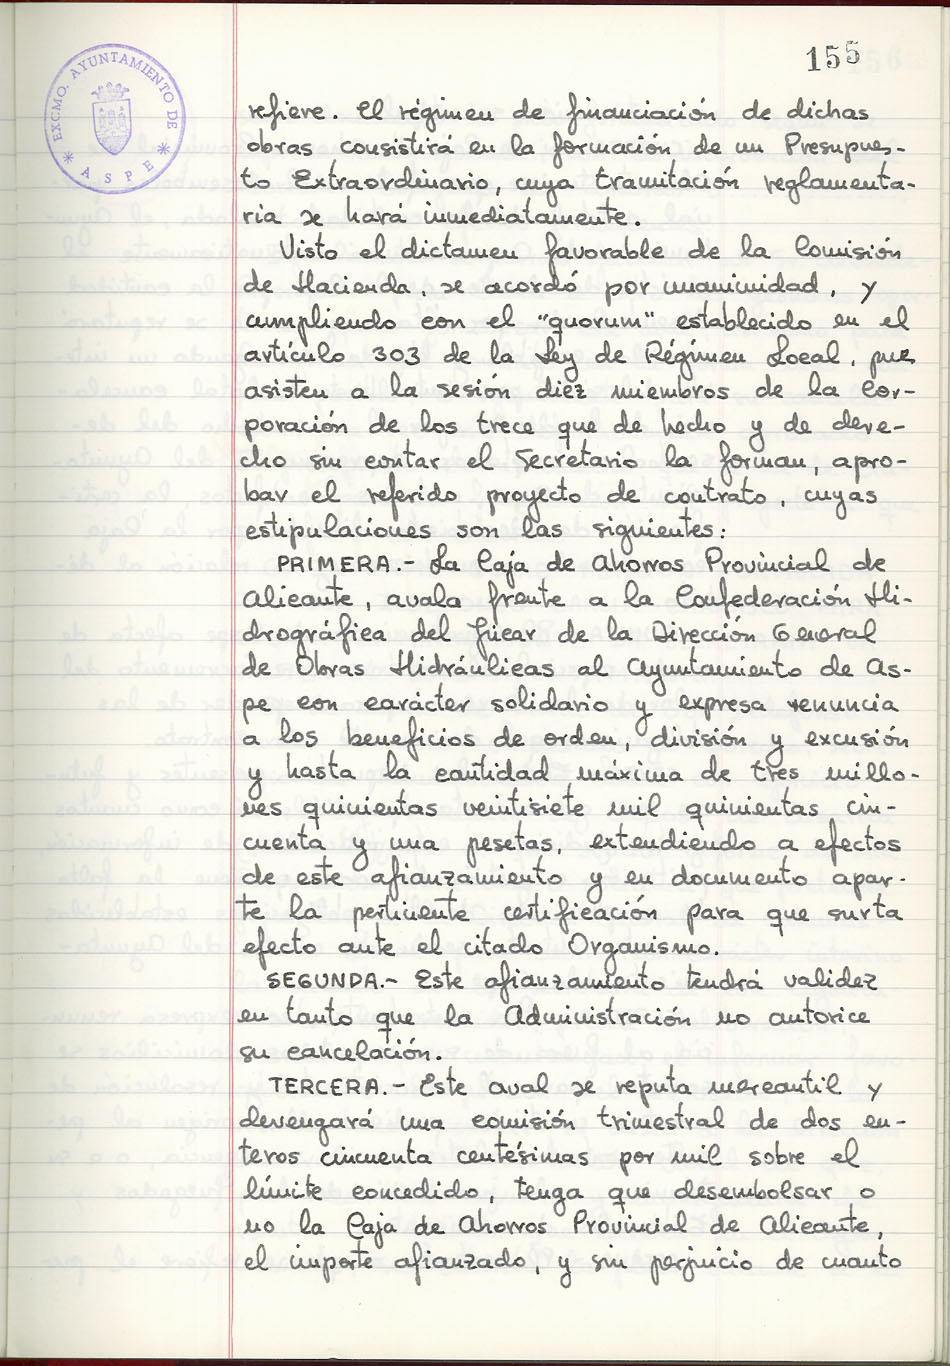 155
EXCMO. AYUNTAMIENTO DE
ASPE
refiere. El régimen de financiación de dichas
obras consistirá en la formación de un Presupues-
to Extraordinario, cuya tramitación reglamenta-
ria se hará inmediatamente.
Visto el dictamen favorable de la Comisión
de Hacienda, se acordó por unanimidad, y
cumpliendo con el "quorum" establecido en el
artículo 303 de la Ley de Régimen Local, pues
asisten a la sesión diez miembros de la Cor-
poración de los trece que de hecho y de dere-
cho sin contar el Secretario la forman, apro-
bar el referido proyecto de contrato, cuyas
estipulaciones son las siguientes:
PRIMERA.- La Caja de Ahorros Provincial de
Alicante, avala frente a la Confederación Hi-
drográfica del Júcar de la Dirección General
de Obras Hidráulicas al Ayuntamiento de As-
pe con carácter solidario y expresa renuncia
a los beneficios de orden, división y excusión
y hasta la cantidad máxima de tres millo-
nes quinientas veintisiete mil quinientas cin-
cuenta y una pesetas, extendiendo a efectos
de este afianzamiento y en documento apar-
te la pertinente certificación para que surta
efecto ante el citado Organismo.
SEGUNDA.- Este afianzamiento tendrá validez
en tanto que la Administración no autorice
su cancelación.
TERCERA.- Este aval se reputa mercantil y
devengará una comisión trimestral de dos en-
teros cincuenta centésimas por mil sobre el
límite concedido, tenga que desembolsar o
no la Caja de Ahorros Provincial de Alicante,
el importe afianzado, y sin perjuicio de cuanto